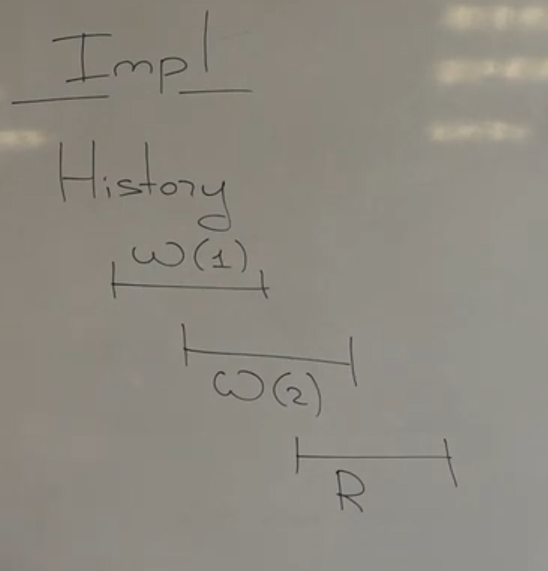 Impl
History
W(1)
W(2)
R